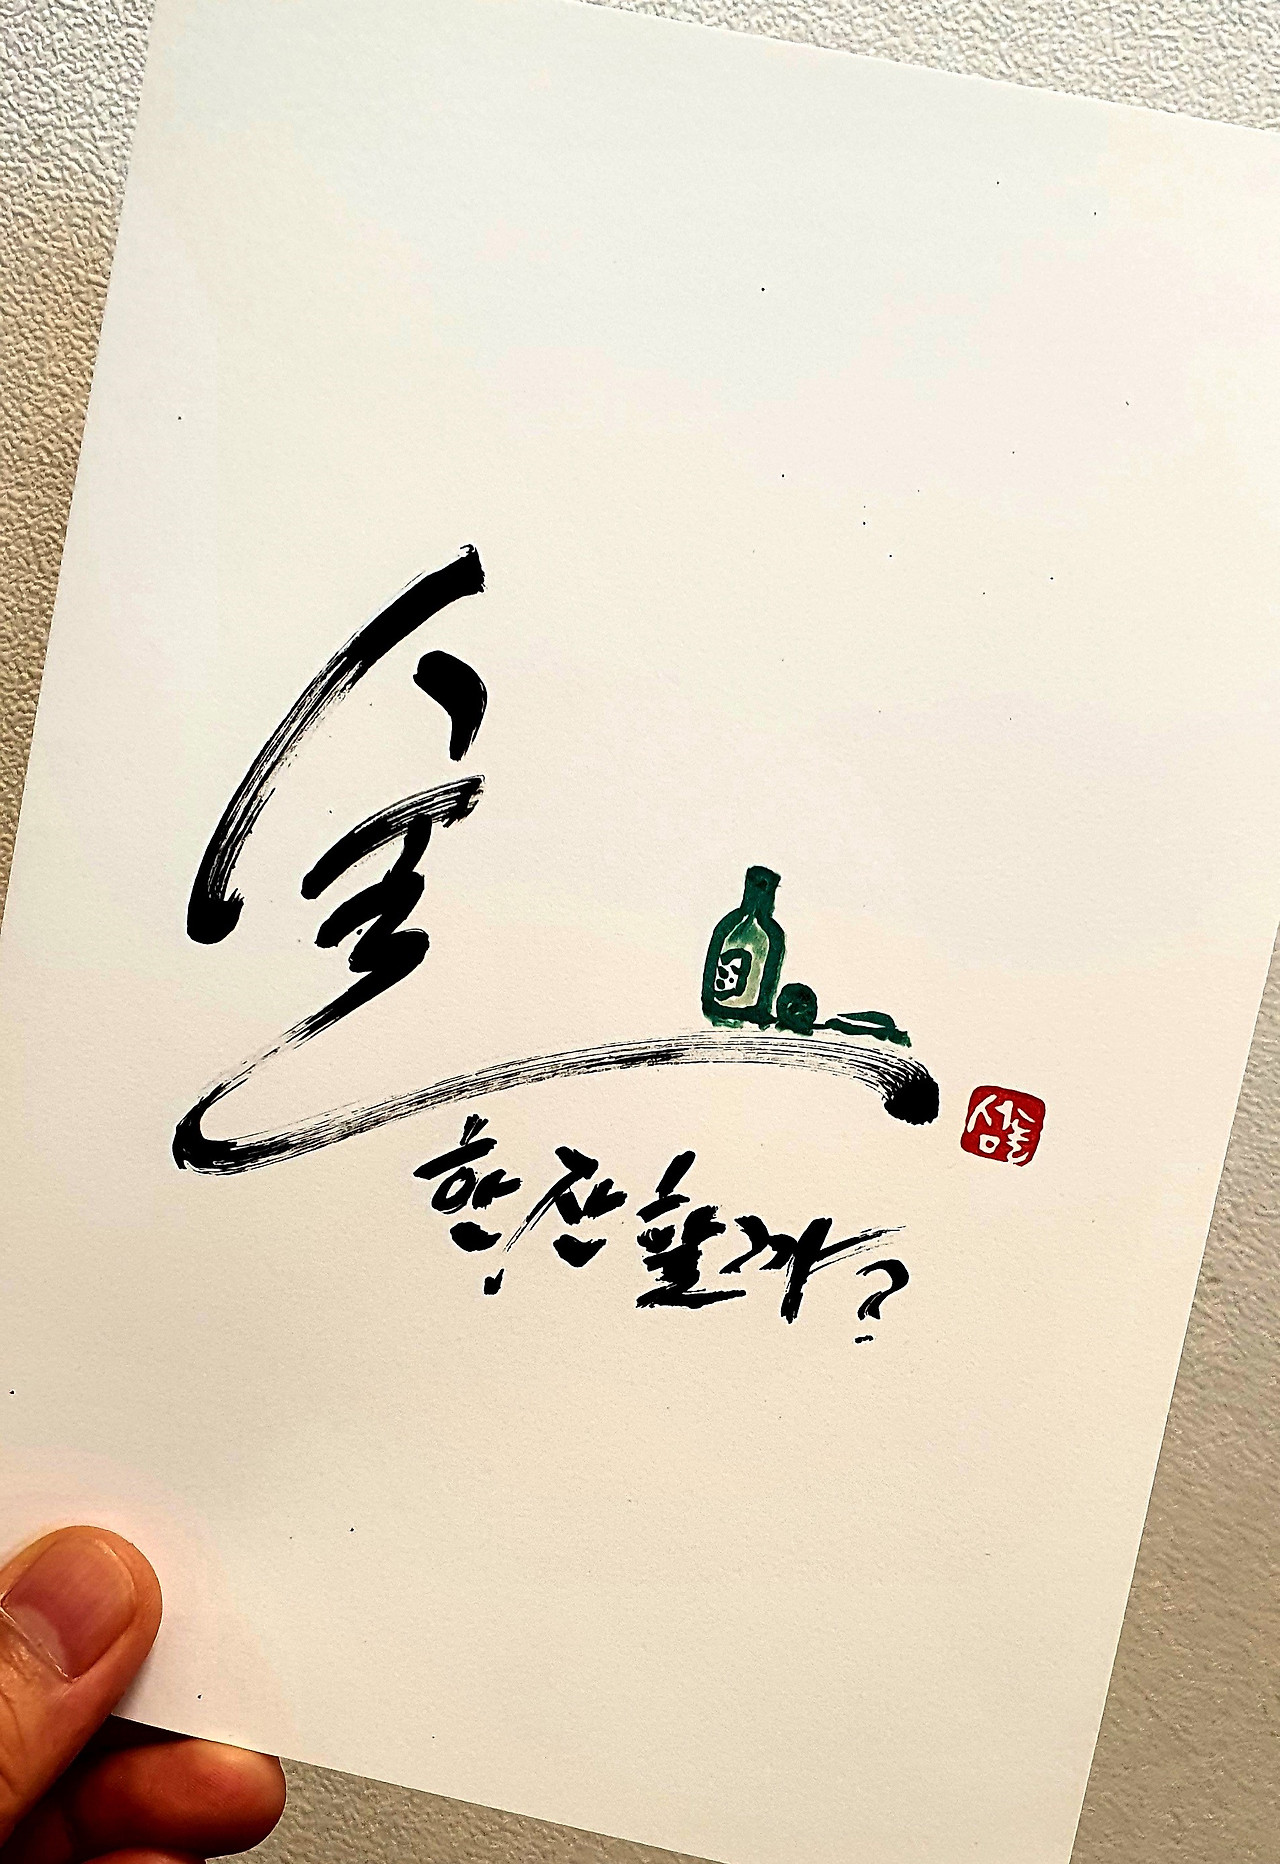 술
한잔할까?